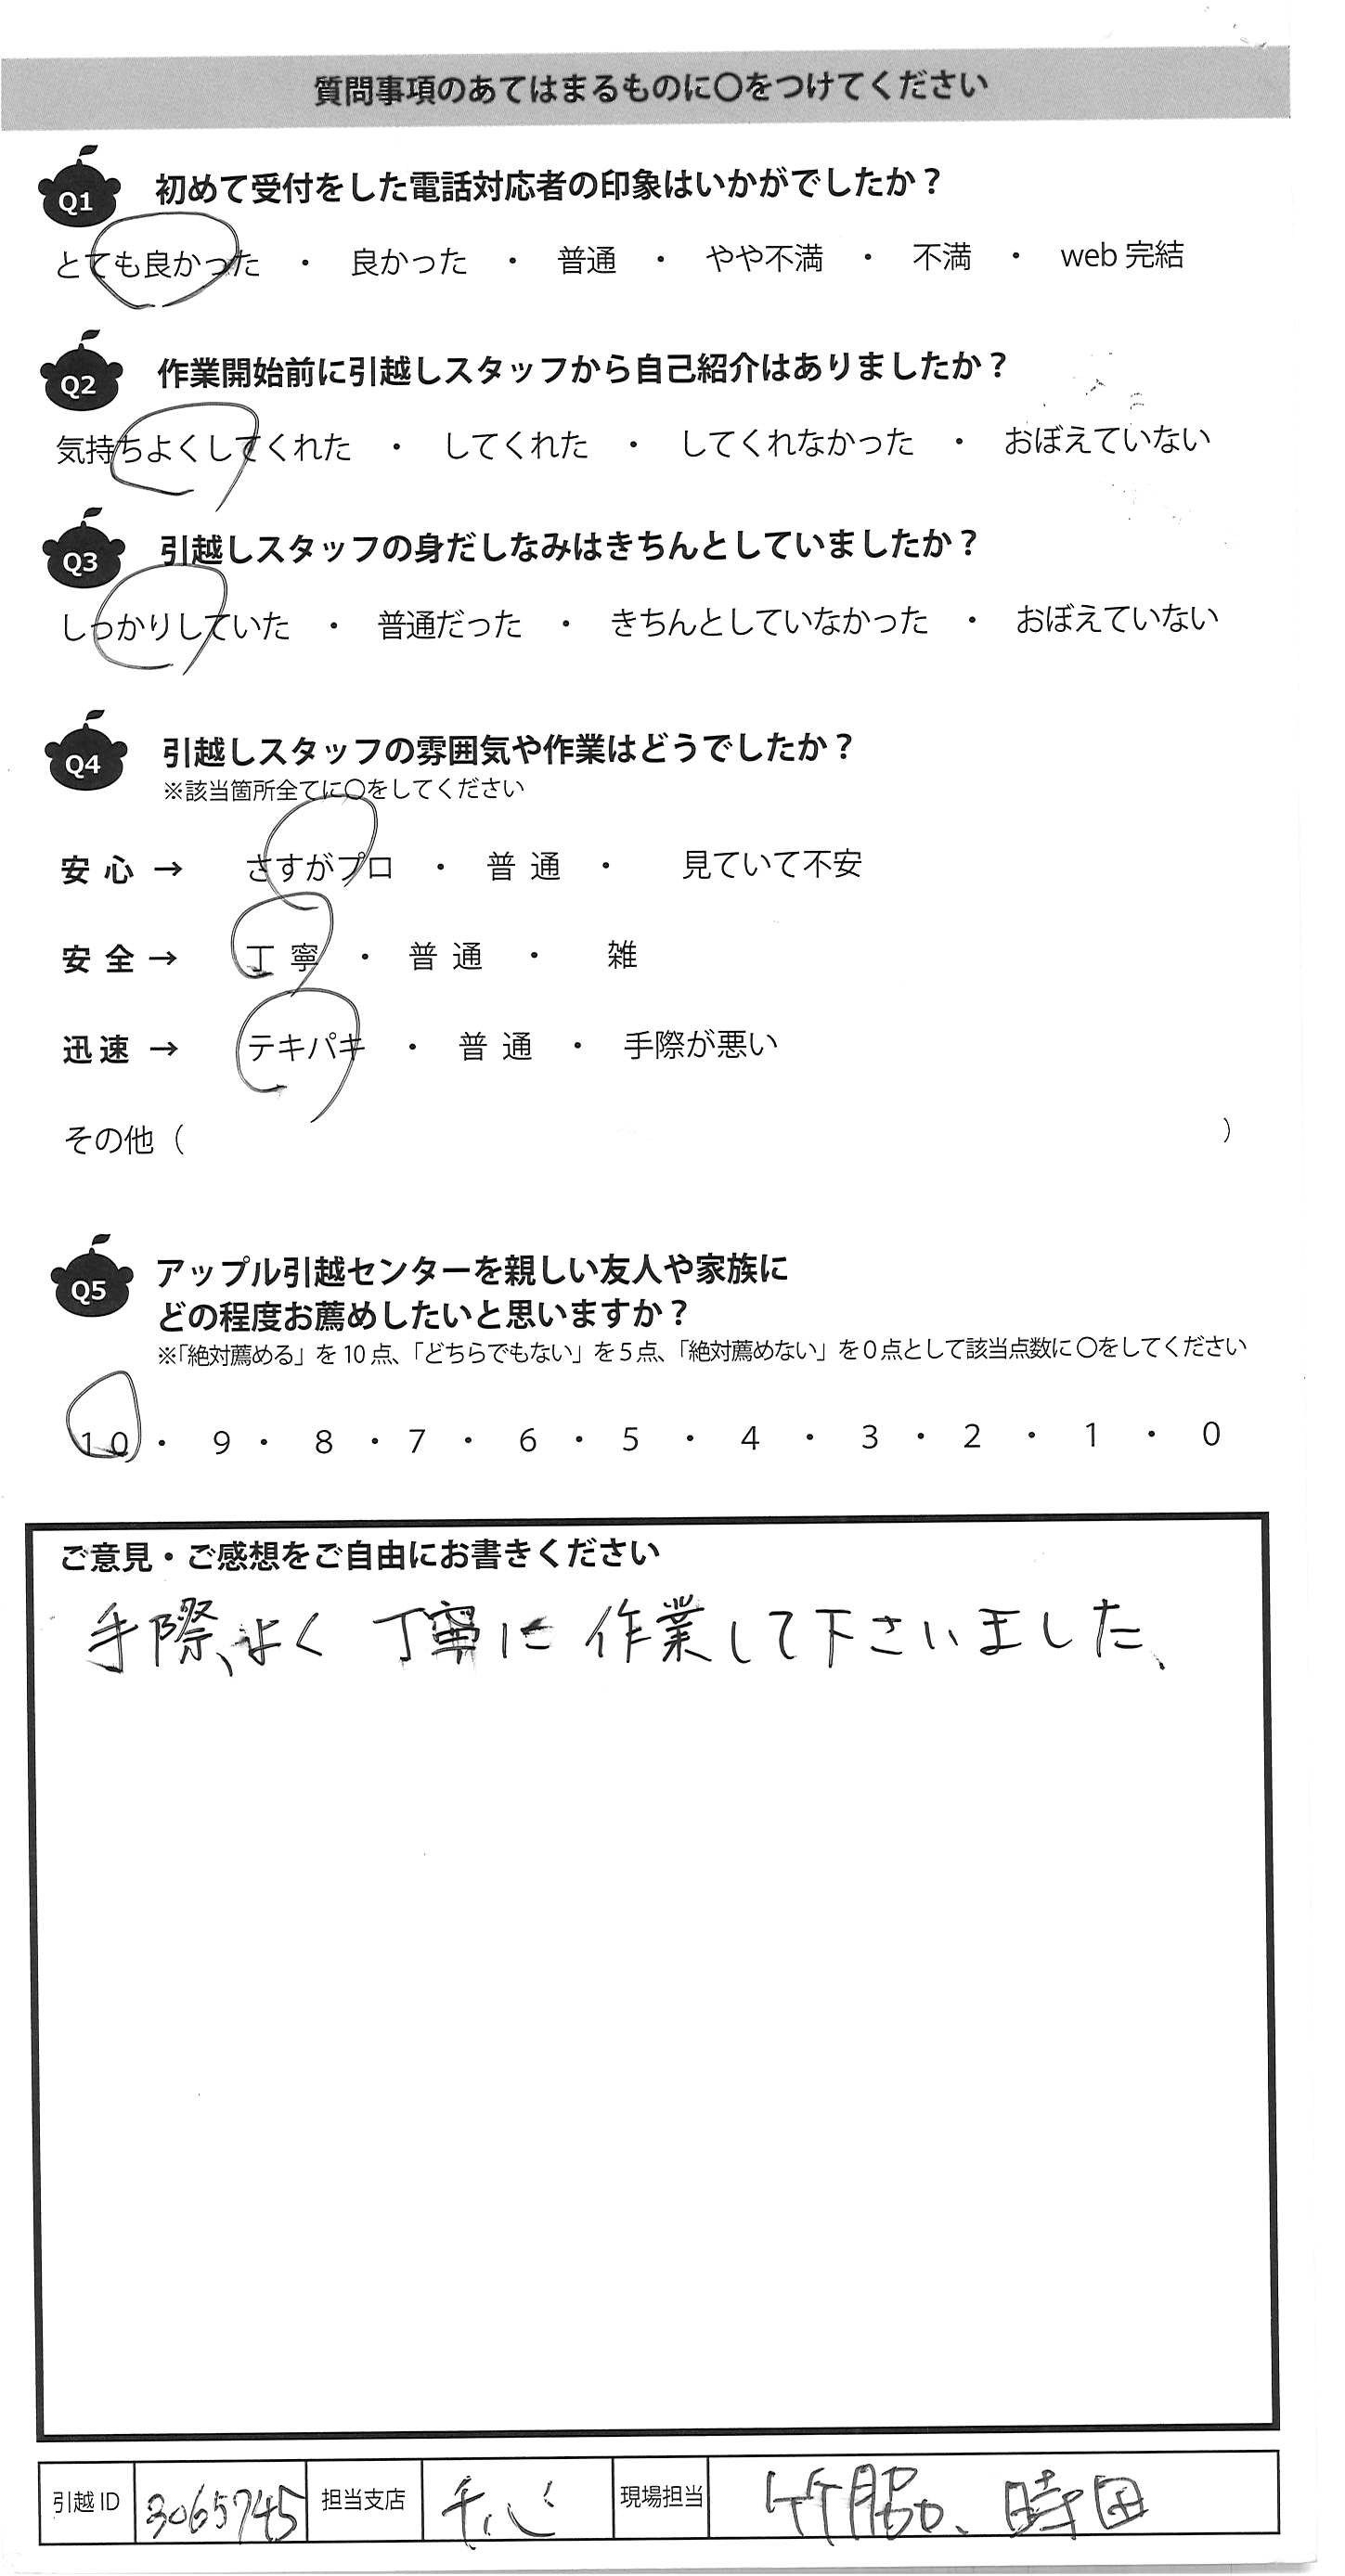 質問事項のあてはまるものに〇をつけてください
Q1 初めて受付をした電話対応者の印象はいかがでしたか？
とても良かった ・ 良かった ・ 普通 ・ やや不満 ・ 不満 ・ web 完結
Q2 作業開始前に引越しスタッフから自己紹介はありましたか？
気持ちよくしてくれた ・ してくれた ・ してくれなかった ・ おぼえていない
Q3 引越しスタッフの身だしなみはきちんとしていましたか？
しっかりしていた ・ 普通だった ・ きちんとしていなかった ・ おぼえていない
Q4 引越しスタッフの雰囲気や作業はどうでしたか？
※該当箇所全てに〇をしてください
安心 → さすがプロ ・ 普通 ・ 見ていて不安
安全 → 丁寧 ・ 普通 ・ 雑
迅速 → テキパキ ・ 普通 ・ 手際が悪い
その他（ ）
Q5 アップル引越センターを親しい友人や家族に
どの程度お薦めしたいと思いますか？
※「絶対薦める」を 10 点、「どちらでもない」を 5 点、「絶対薦めない」を 0 点として該当点数に 〇をしてください
10 ・ 9 ・ 8 ・ 7 ・ 6 ・ 5 ・ 4 ・ 3 ・ 2 ・ 1 ・ 0
ご意見・ご感想をご自由にお書きください
手際、よく 丁寧に 作業して下さいました、
引越 ID 3065745 担当支店 現場担当 竹脇、時田